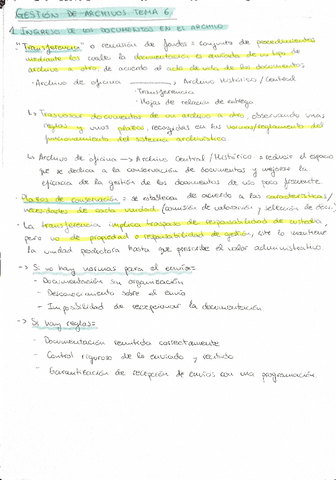 GESTIÓN DE ARCHIVOS TEMA 6
1. INGRESO DE LOS DOCUMENTOS EN EL ARCHIVO
"Transferencia" o remisión de fondos = conjunto de procedimientos
mediante los cuales la documentación es enviada de un tipo de
archivo a otro, de acuerdo al ciclo de vida de los documentos.
· Archivo de oficina → Archivo Histórico / Central
· Transferencia
· Hojas de relación de entrega
↳ Trasvasar documentos de un archivo a otro, observando unas
reglas y unos plazos, recogidas en las normas/reglamento del
funcionamiento del sistema archivístico
↳ Archivo de oficina → Archivo Central / Histórico = reducir el espacio
que se dedica a la conservación de documentos y mejorar la
eficacia de la gestión de los documentos de uso poco frecuente
· Plazos de conservación = se establecen de acuerdo a las características/
necesidades de cada unidad. (comisión de valoración y selección de docu.)
· La transferencia implica traspaso de responsabilidad de custodia,
pero no de propiedad o responsabilidad de gestión, este lo mantiene
la unidad productora hasta que prescribe el valor administrativo
--> Si no hay normas para el envío =
- Documentación sin organización
- Desconocimiento sobre el envío
- Imposibilidad de recepcionar la documentación
--> Si hay reglas =
- Documentación remitida correctamente
- Control riguroso de lo enviado y recibido
- Garantización de recepción de envíos con una programación.